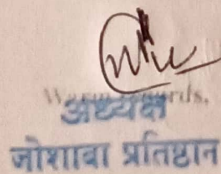 Warm regards,
अध्यक्ष
जोशाबा प्रतिष्ठान